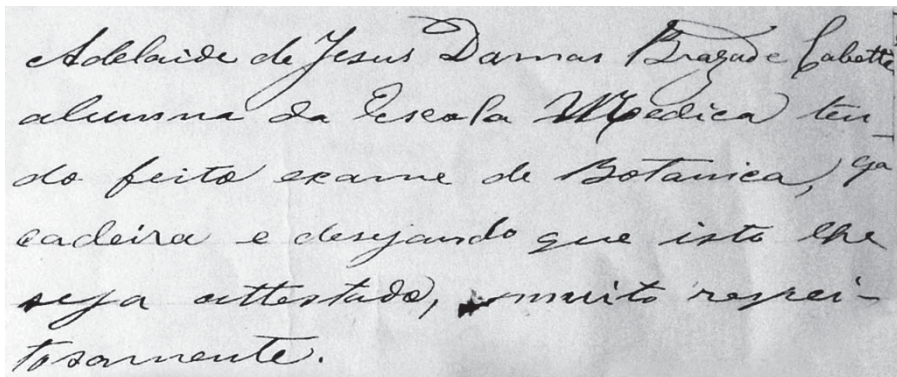 Adelaide de Jesus Damas Brazão e Cabette
alumna da Escola Medica ten-
do feito exame de Botanica, 9ª
cadeira e desejando que isto lhe
seja attestado, muito respei-
tosamente.